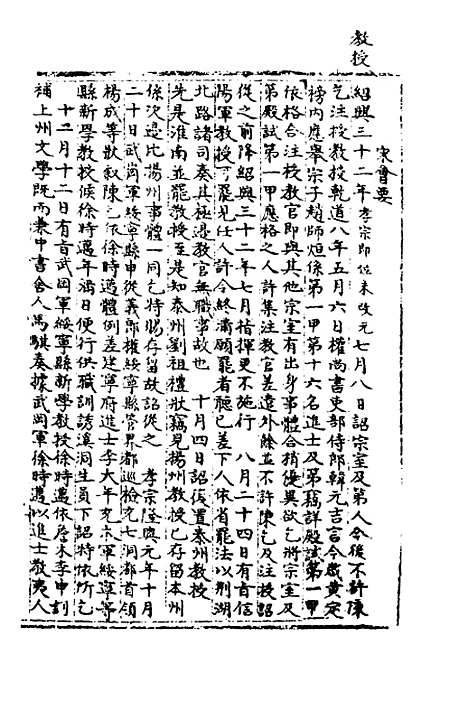 教授
宋會要
紹興三十二年孝宗即位未改元七月八日詔宗室及第人今後不許陳
乞注授教授乾道八年五月六日權尚書吏部侍郎韓元吉言今歲黃定
榜內應舉宗子趙師烜係第一甲第十六名進士及第竊詳殿試第一甲
依格合注授教官即與其他宗室有出身事體合稍優異欲乞將宗室及
第殿試第一甲應格之人許集注教官差遣外餘並不許陳乞及注授詔
從之前降紹興三十二年七月指揮更不施行 八月二十四日有旨信
陽軍教授可罷見任人許令終滿願罷者聽已差下人依省罷法以荊湖
北路諸司奏其極邊教官無職事故也 十月四日詔復置泰州教授
先是淮南並罷教授至是知泰州劉祖禮狀竊見揚州教授已存留本州
係次邊比揚州事體一同乞特賜存留故詔從之 孝宗隆興元年十月
二十日武岡軍綏寧縣申從義郎權綏寧縣管界都巡檢充七洞都首領
楊成等狀叙陳乞依徐時邁體例差建寧府進士李大年充本軍綏寧等
縣新學教授候徐時邁年滿日便行供職訓誘溪洞生員下詔特依所乞
十二月十二日有旨武岡軍綏寧縣新學教授徐時邁依詹木李申到
補上州文學既而兼中書舍人馬騏奏據武岡軍徐時邁以進士教夷人